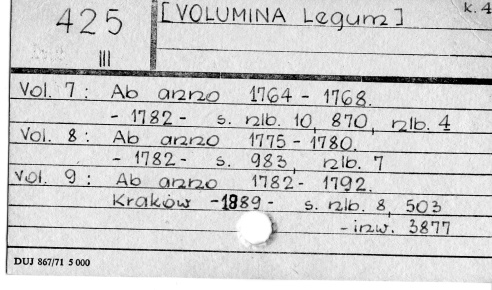 425
III
[VOLUMINA Legum]
k. 4
Vol. 7 : Ab anno 1764 - 1768.
- 1782 - s. nlb. 10, 870, nlb. 4
Vol. 8 : Ab anno 1775 - 1780.
- 1782 - s. 983, nlb. 7
Vol. 9 : Ab anno 1782 - 1792.
Kraków - 1889 - s. nlb. 8, 503
- inw. 3877
DUJ 867/71 5 000